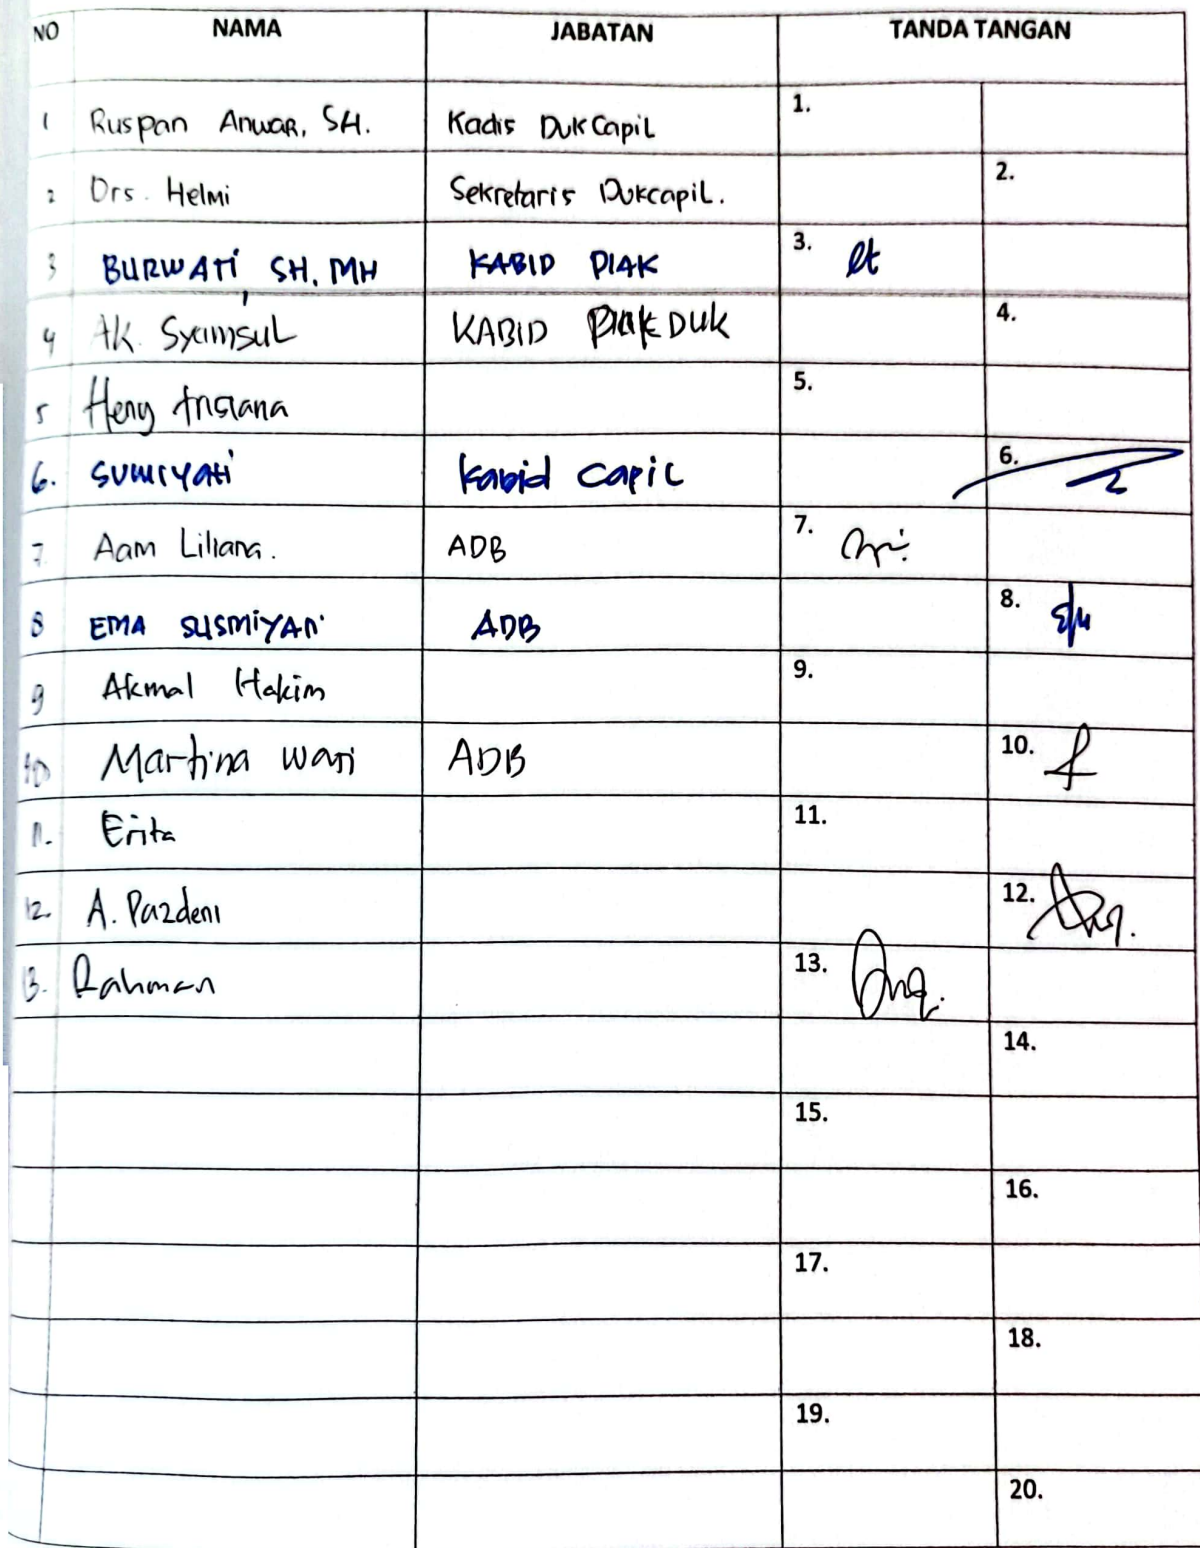 NO NAMA JABATAN TANDA TANGAN
1 Ruspan Anwar, SH. Kadis DukCapil 1.
2 Drs. Helmi Sekretaris Dukcapil. 2.
3 BURWATI, SH, MH KABID PIAK 3.
4 AK. Syamsul KABID DUK 4.
5 Heny 5.
6. SUMIYATI Kabid Capil 6.
7. Aam Liliana. ADB 7.
8 EMA SUSMIYATI ADB 8.
9 Akmal Hakim 9.
10 Martina Wati ADB 10.
11. Erita 11.
12. A. Pazdeni 12.
13. Rahman 13.
14.
15.
16.
17.
18.
19.
20.